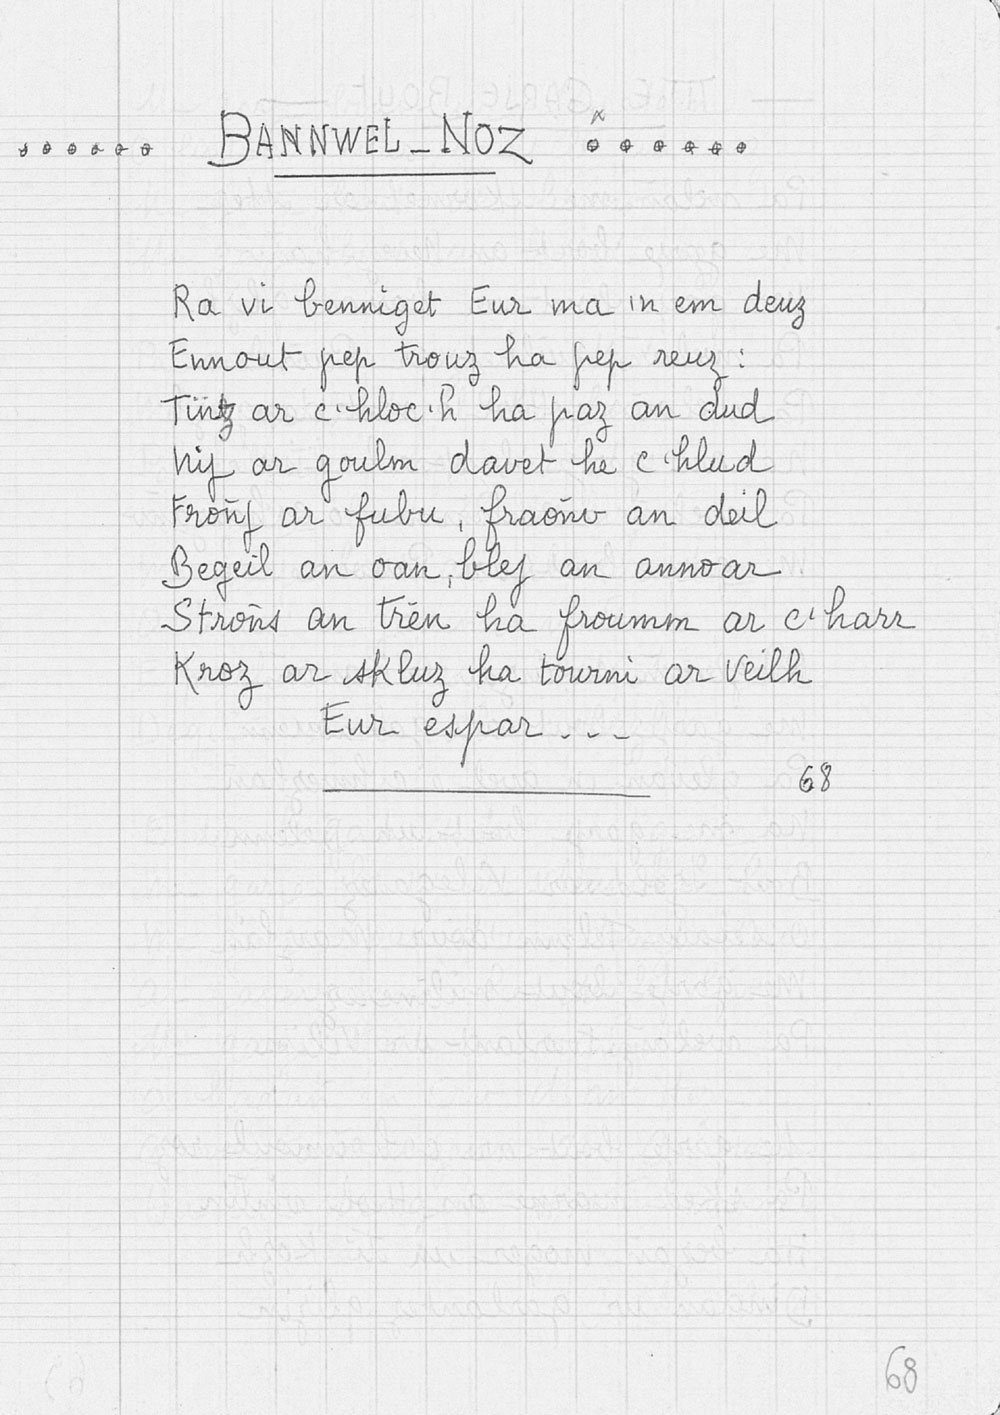 BANNWEL_NOZ
Ra vi benniget Eur ma 'n em deuz
Ennout pep trouz ha pep reuz :
Tintz ar c'hloc'h ha paz an dud
Nij ar goulm davet he c'hlud
Froñj ar fubu, fraoñv an deil
Begeil an oan, blej an annoar
Stroñs an trēn ha froumm ar c'harr
Kroz ar skluz ha tourni ar veilh
Eur espar . . .
68
68